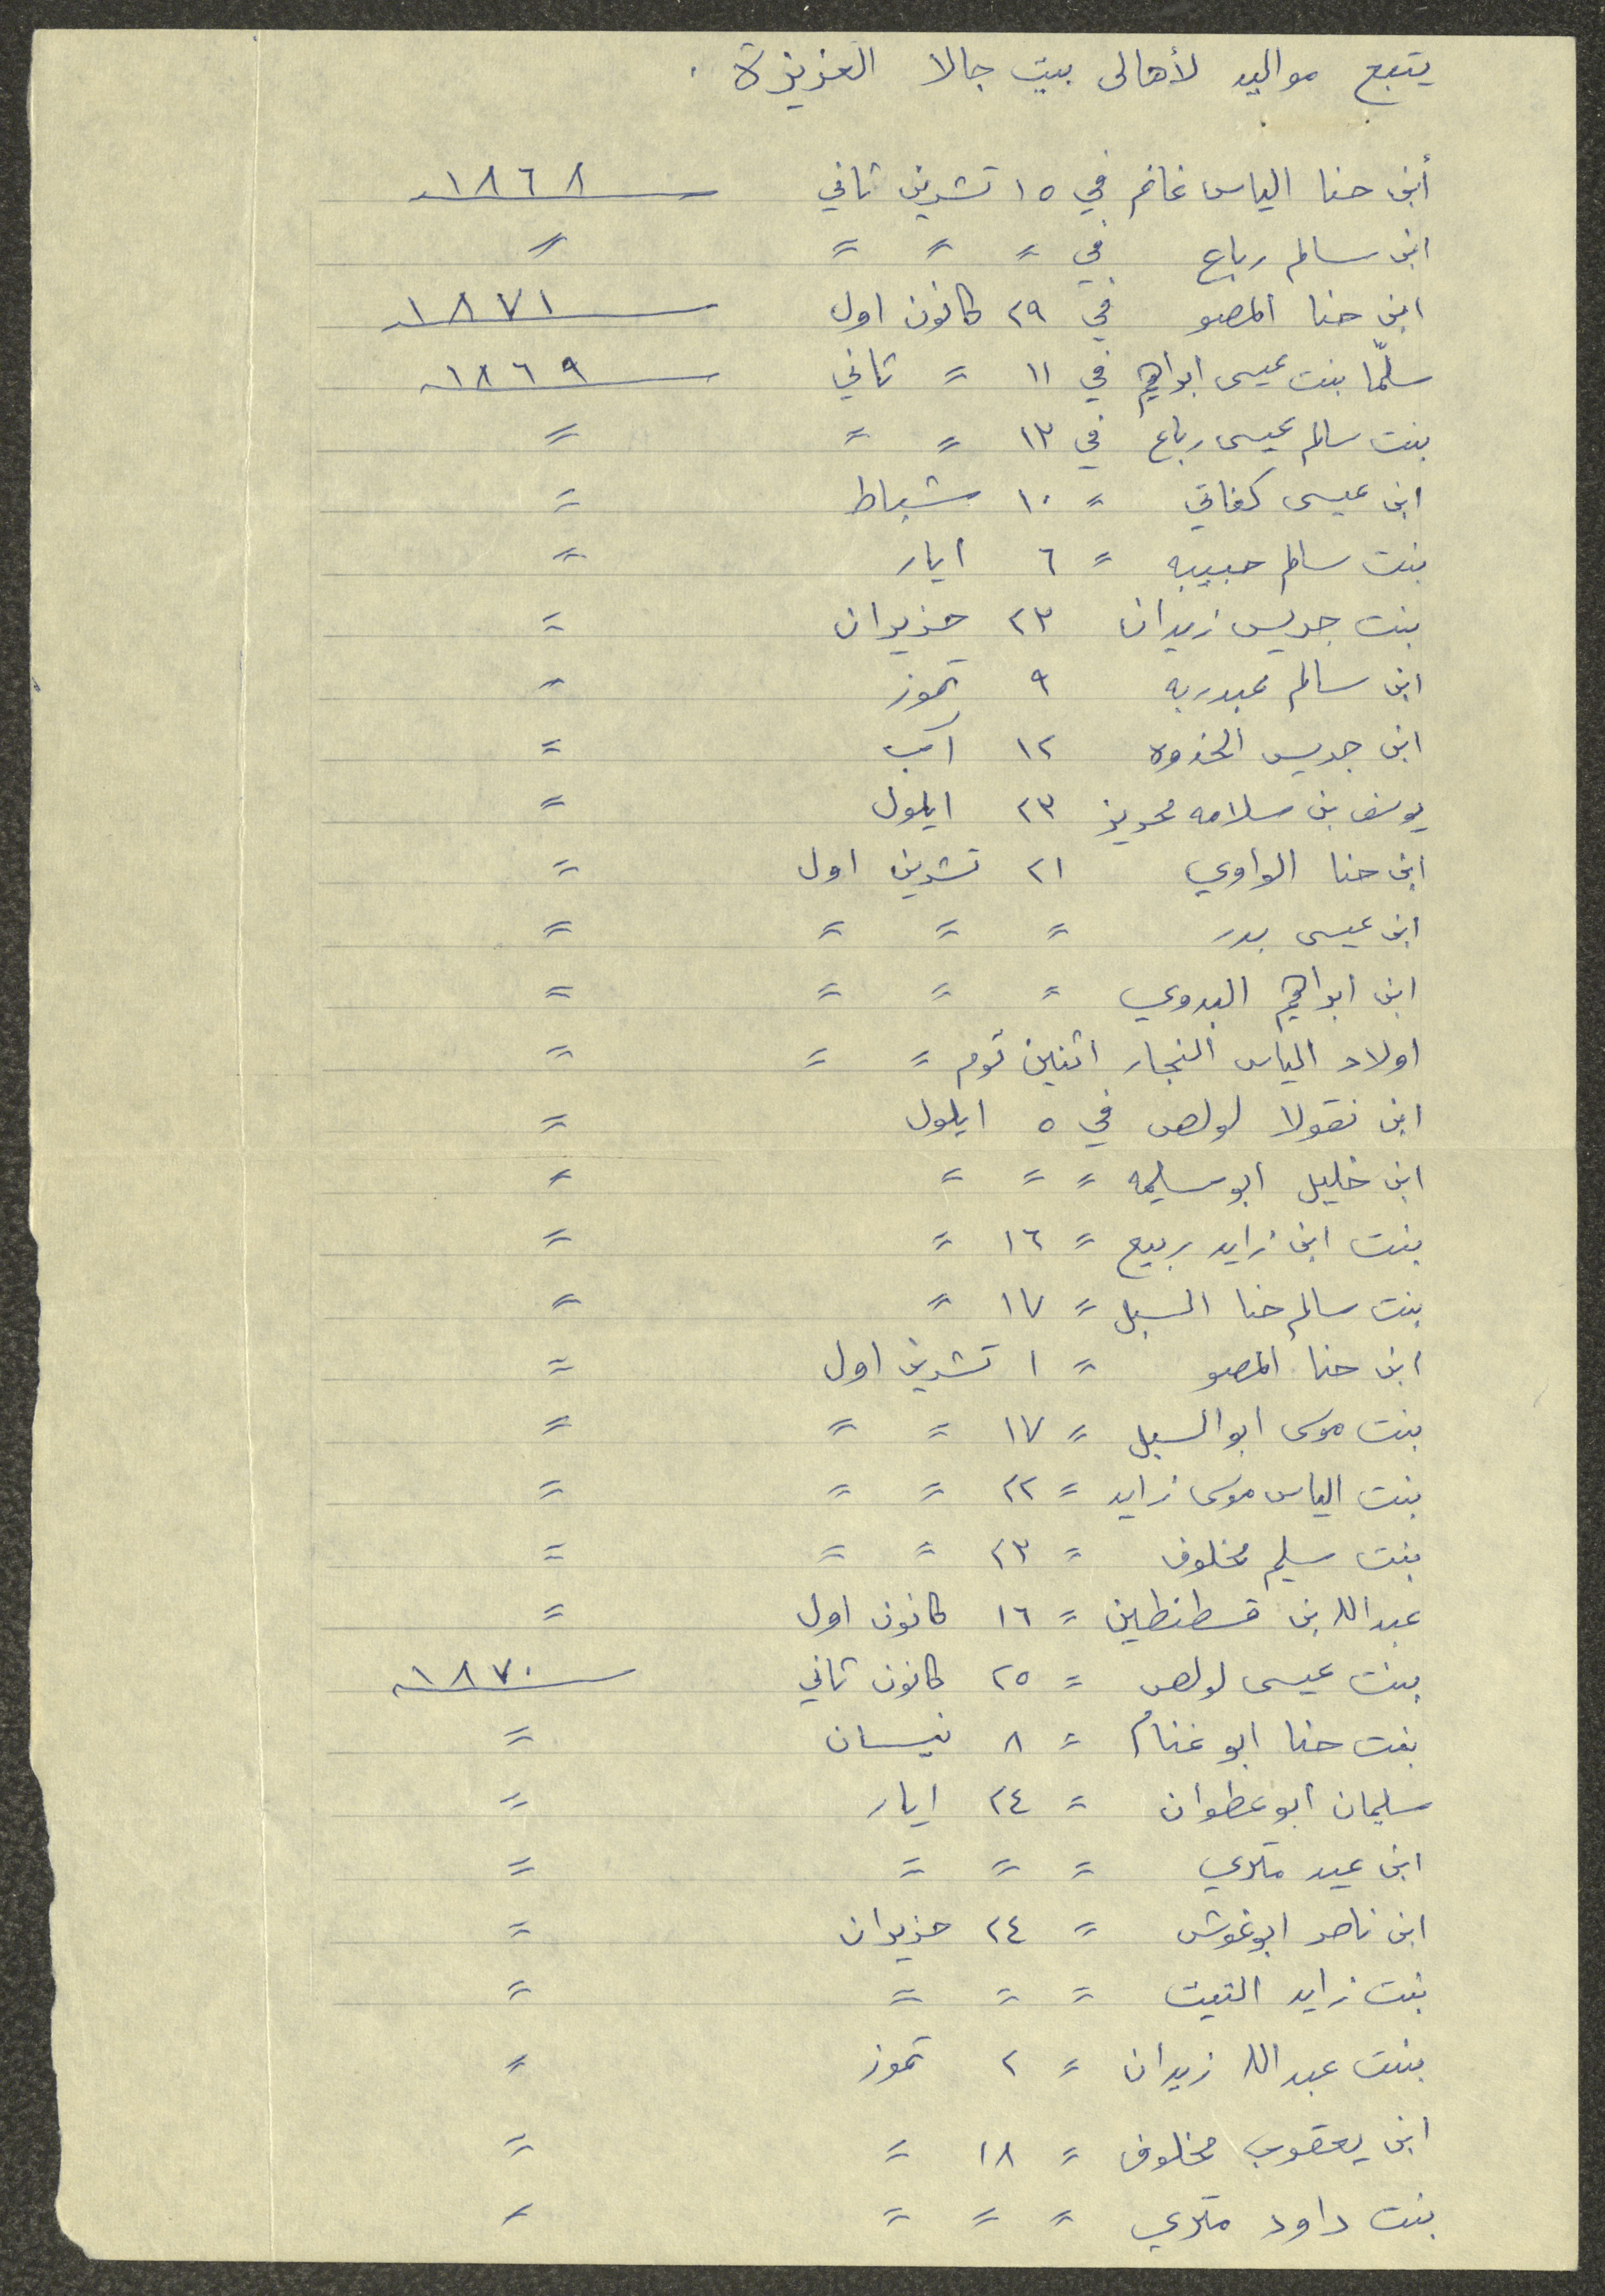 يتبع مواليد لأهالى بيت جالا العزيزة .
أبن حنا الياس غانم في ١٥ تشرين تاني ١٨٦٨
ابن سالم رباع في〃 〃 〃 〃
ابن حنا المصو في ٢٩ كانون اول ١٨٧١
سلمّا بنت عيسى ابراهيم في ١١ 〃 تاني ١٨٦٩
بنت سالم عيسى رباع في ١٣ 〃 〃 〃
ابن عيسى كفاتي 〃 ١٠ شباط 〃
بنت سالم حبيبه 〃 ٦ ايار 〃
بنت جريس زيدان ٢٣ حزيران 〃
ابن سالم عبدربه ٩ تموز 〃
ابن جريس الخذوه ١٢ آب 〃
يوسف بن سلامه محريز ٢٣ ايلول 〃
ابن حنا الواوي ٢١ تشرين اول 〃
ابن عيسى بدر 〃 〃 〃 〃
ابن ابراهيم البدوي 〃 〃 〃 〃
اولاد الياس النجار اتنين توم 〃 〃 〃
ابن نقولا لولص في ٥ ايلول 〃
ابن خليل ابو سليمه 〃 〃 〃 〃
بنت ابن زايد ربيع 〃 ١٦ 〃 〃
بنت سالم حنا السبل 〃 ١٧ 〃 〃
ابن حنا المصو 〃 ١ تشرين اول 〃
بنت موسى ابو السبل 〃 ١٧ 〃 〃 〃
بنت الياس موسى زايد 〃 ٢٢ 〃 〃 〃
بنت سليم مخلوف 〃 ٢٣ 〃 〃 〃
عبدالله بن قسطنطين 〃 ١٦ كانون اول 〃
بنت عيسى لولص 〃 ٢٥ كانون تاني ١٨٧٠
بنت حنا ابو غنام 〃 ٨ نيسان 〃
سليمان ابو عطوان 〃 ٢٤ ايار 〃
ابن عيد متري 〃 〃 〃 〃
ابن ناصر ابوغوش 〃 ٢٤ حزيران 〃
بنت زايد التيت 〃 〃 〃 〃
بنت عبدالله زيدان 〃 ٢ تموز 〃
ابن يعقوب مخلوف 〃 ١٨ 〃 〃
بنت داود متري 〃 〃 〃 〃